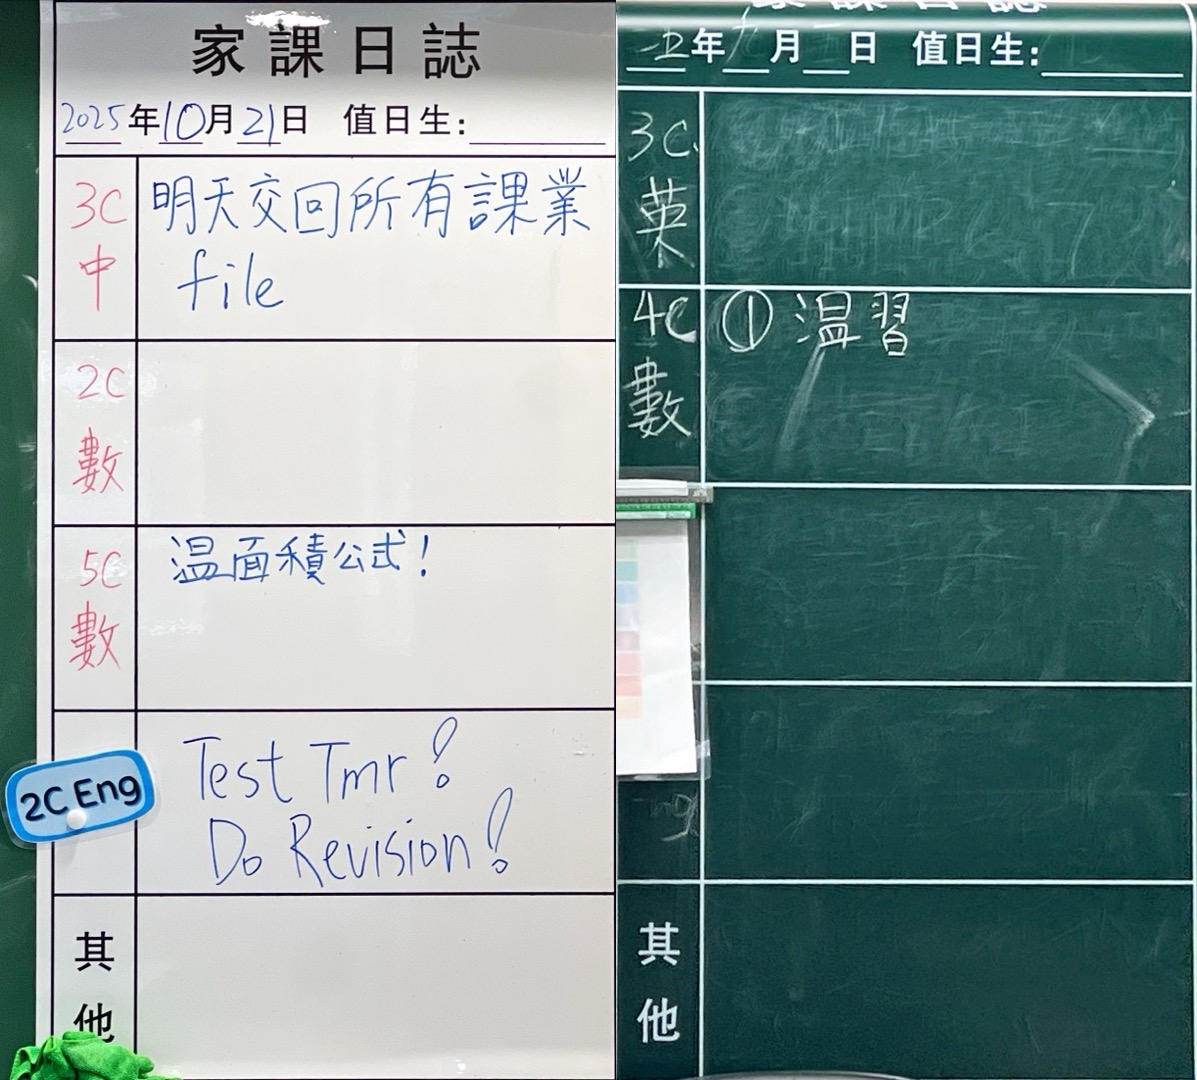 家課日誌
2025年10月21日 值日生:
3C
中
明天交回所有課業
file
2C
數
5C
數
温面積公式!
2C Eng
Test Tmr!
Do Revision!
其
他
家課日誌
年 月 日 值日生:
3C
英
4C
數
① 温習
其
他